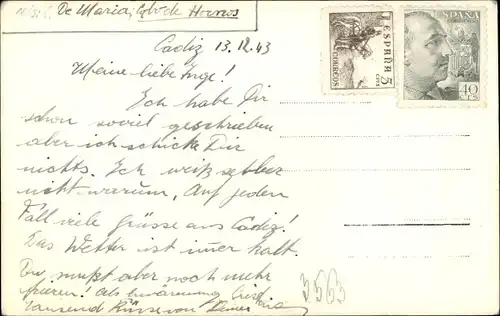 De Maria, Calvo de Hornos
Cadiz 13.12.43
ESPAÑA
CORREOS
5
CTS
ESPAÑA
40
CTS
Meine liebe Inge!
Ich habe Dir
schon soviel geschrieben
aber ich schicke Dir
nichts. Ich weiß selber
nicht warum. Auf jeden
Fall viele Grüsse aus Cadiz!
Das Wetter ist imer kalt.
Du mußt aber noch mehr
frieren! Als Erwärmung hier
tausend Küsse von Deiner Maria
3563